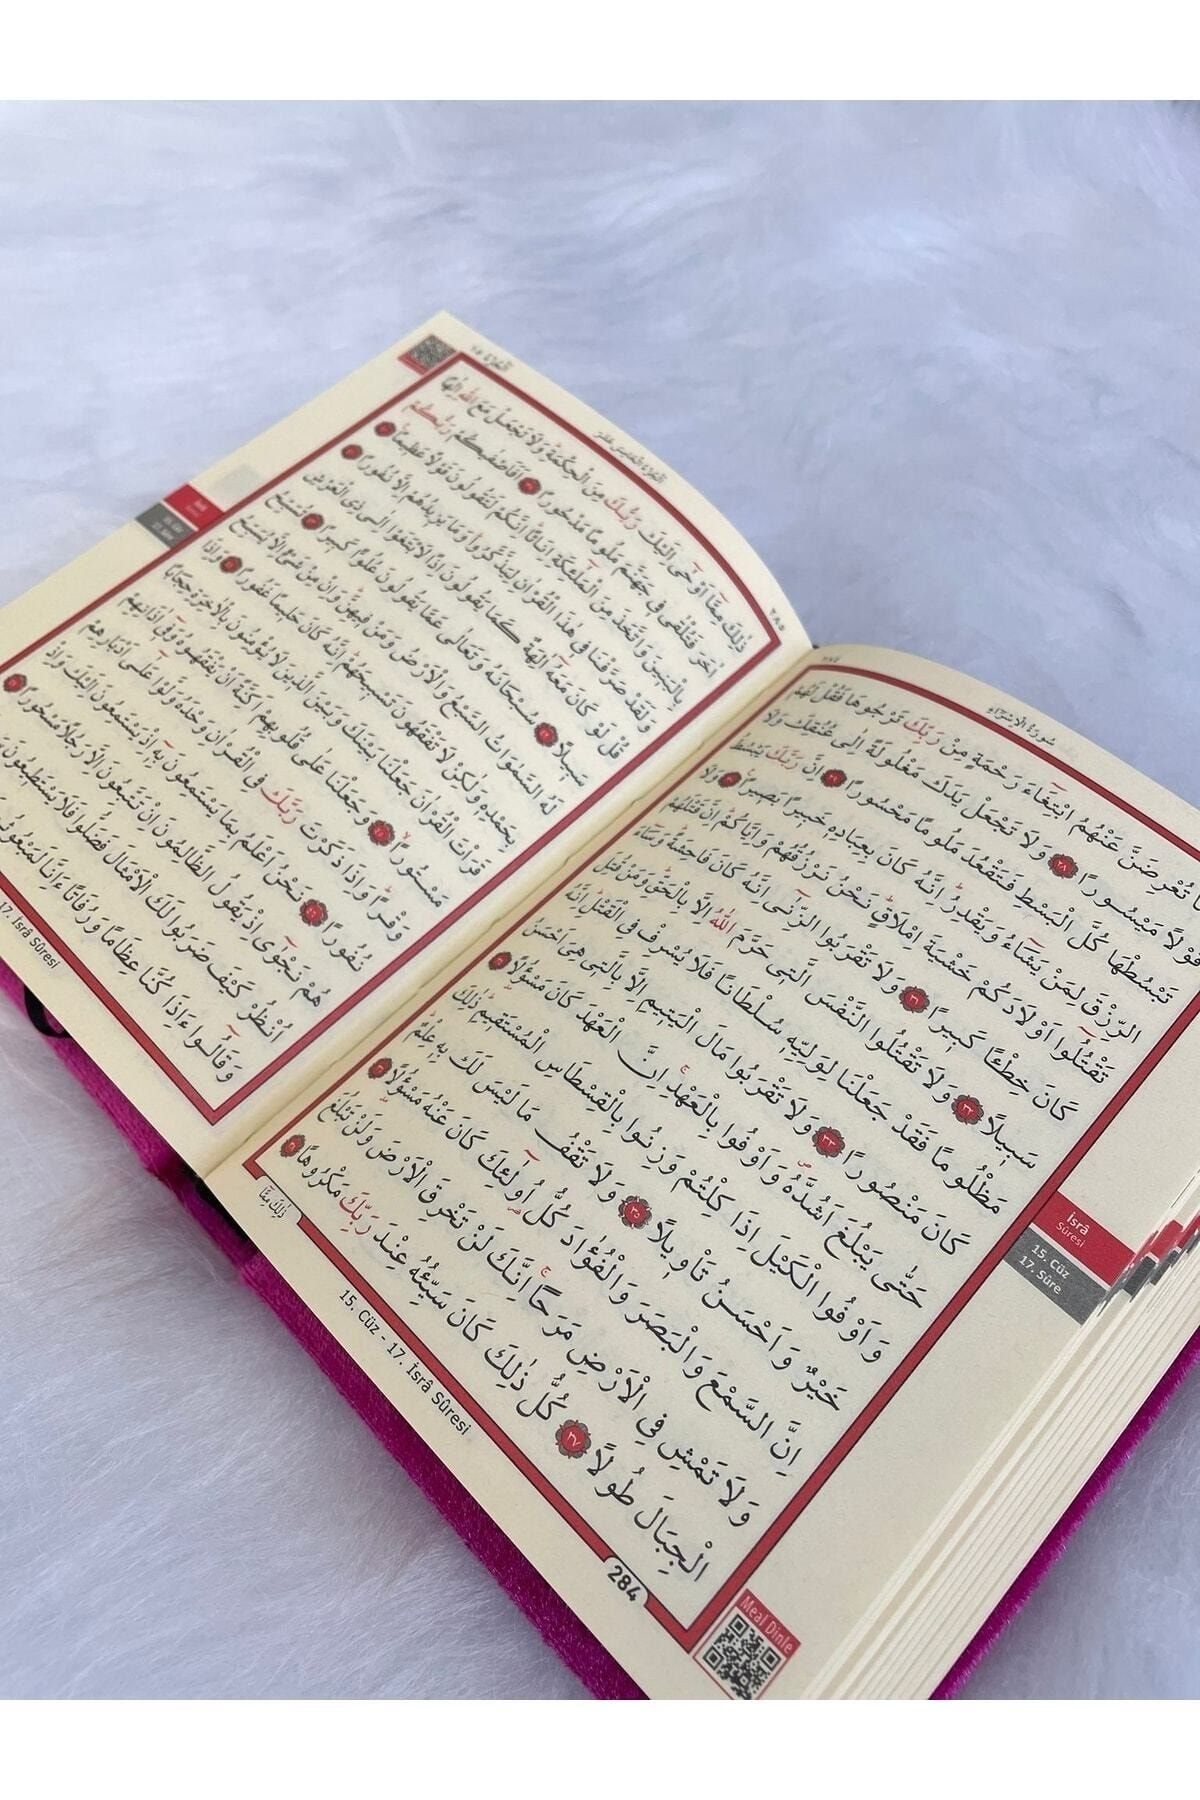 ٢٨٤
سُورَةُ الْاِسْرَاءِ
تُعْرِضَنَّ عَنْهُمُ ابْتِغَٓاءَ رَحْمَةٍ مِنْ رَبِّكَ تَرْجُوهَا فَقُلْ لَهُمْ
قَوْلًا مَيْسُورًا ٢٨ وَلَا تَجْعَلْ يَدَكَ مَغْلُولَةً اِلٰى عُنُقِكَ وَلَا
تَبْسُطْهَا كُلَّ الْبَسْطِ فَتَقْعُدَ مَلُومًا مَحْسُورًا ٢٩ اِنَّ رَبَّكَ يَبْسُطُ
الرِّزْقَ لِمَنْ يَشَٓاءُ وَيَقْدِرُ اِنَّهُ كَانَ بِعِبَادِهِ خَبِيرًا بَصِيرًا ٣٠ وَلَا
تَقْتُلُٓوا اَوْلَادَكُمْ خَشْيَةَ اِمْلَاقٍ نَحْنُ نَرْزُقُهُمْ وَاِيَّاكُمْ اِنَّ قَتْلَهُمْ
كَانَ خِطْـًٔا كَبِيرًا ٣١ وَلَا تَقْرَبُوا الزِّنٰٓى اِنَّهُ كَانَ فَاحِشَةً وَسَٓاءَ
سَبِيلًا ٣٢ وَلَا تَقْتُلُوا النَّفْسَ الَّتِي حَرَّمَ اللّٰهُ اِلَّا بِالْحَقِّ وَمَنْ قُتِلَ
مَظْلُومًا فَقَدْ جَعَلْنَا لِوَلِيِّهِ سُلْطَانًا فَلَا يُسْرِفْ فِي الْقَتْلِ اِنَّهُ
كَانَ مَنْصُورًا ٣٣ وَلَا تَقْرَبُوا مَالَ الْيَتِيمِ اِلَّا بِالَّتِي هِيَ اَحْسَنُ
حَتّٰى يَبْلُغَ اَشُدَّهُ وَاَوْفُوا بِالْعَهْدِ اِنَّ الْعَهْدَ كَانَ مَسْؤُلًا ٣٤
وَاَوْفُوا الْكَيْلَ اِذَا كِلْتُمْ وَزِنُوا بِالْقِسْطَاسِ الْمُسْتَقِيمِ ذٰلِكَ
خَيْرٌ وَاَحْسَنُ تَاْوِيلًا ٣٥ وَلَا تَقْفُ مَا لَيْسَ لَكَ بِهِ عِلْمٌ
اِنَّ السَّمْعَ وَالْبَصَرَ وَالْفُؤٰادَ كُلُّ اُو۬لٰٓئِكَ كَانَ عَنْهُ مَسْؤُلًا ٣٦
وَلَا تَمْشِ فِي الْاَرْضِ مَرَحًا اِنَّكَ لَنْ تَخْرِقَ الْاَرْضَ وَلَنْ تَبْلُغَ
الْجِبَالَ طُولًا ٣٧ كُلُّ ذٰلِكَ كَانَ سَيِّئُهُ عِنْدَ رَبِّكَ مَكْرُوهًا ٣٨
ذٰلِكَ مِمَّٓا
İsrâ
Sûresi
15. Cüz
17. Sûre
15. Cüz - 17. İsrâ Sûresi
284
Meal Dinle
٢٨٥
اَلْجُزْءُ الْخَامِسَ عَشَرَ
ذٰلِكَ مِمَّٓا اَوْحٰٓى اِلَيْكَ رَبُّكَ مِنَ الْحِكْمَةِ وَلَا تَجْعَلْ مَعَ اللّٰهِ اِلٰهًا
اٰخَرَ فَتُلْقٰى فِي جَهَنَّمَ مَلُومًا مَدْحُورًا ٣٩ اَفَاَصْفٰيكُمْ رَبُّكُمْ
بِالْبَنِينَ وَاتَّخَذَ مِنَ الْمَلٰٓئِكَةِ اِنَاثًا اِنَّكُمْ لَتَقُولُونَ قَوْلًا عَظِيمًا ٤٠
وَلَقَدْ صَرَّفْنَا فِي هٰذَا الْقُرْاٰنِ لِيَذَّكَّرُوا وَمَا يَزِيدُهُمْ اِلَّا نُفُورًا ٤١
قُلْ لَوْ كَانَ مَعَهُٓ اٰلِهَةٌ كَمَا يَقُولُونَ اِذًا لَابْتَغَوْا اِلٰى ذِي الْعَرْشِ
سَبِيلًا ٤٢ سُبْحَانَهُ وَتَعَالٰى عَمَّا يَقُولُونَ عُلُوًّا كَبِيرًا ٤٣ تُسَبِّحُ
لَهُ السَّمٰوَاتُ السَّبْعُ وَالْاَرْضُ وَمَنْ فِيهِنَّ وَاِنْ مِنْ شَيْءٍ اِلَّا يُسَبِّحُ
بِحَمْدِهِ وَلٰكِنْ لَا تَفْقَهُونَ تَسْبِيحَهُمْ اِنَّهُ كَانَ حَلِيمًا غَفُورًا ٤٤ وَاِذَا
قَرَاْتَ الْقُرْاٰنَ جَعَلْنَا بَيْنَكَ وَبَيْنَ الَّذِينَ لَا يُؤْمِنُونَ بِالْاٰخِرَةِ حِجَابًا
مَسْتُورًا ٤٥ وَجَعَلْنَا عَلٰى قُلُوبِهِمْ اَكِنَّةً اَنْ يَفْقَهُوهُ وَفِٓي اٰذَانِهِمْ
وَقْرًا وَاِذَا ذَكَرْتَ رَبَّكَ فِي الْقُرْاٰنِ وَحْدَهُ وَلَّوْا عَلٰٓى اَدْبَارِهِمْ
نُفُورًا ٤٦ نَحْنُ اَعْلَمُ بِمَا يَسْتَمِعُونَ بِهِٓ اِذْ يَسْتَمِعُونَ اِلَيْكَ وَاِذْ
هُمْ نَجْوٰٓى اِذْ يَقُولُ الظَّالِمُونَ اِنْ تَتَّبِعُونَ اِلَّا رَجُلًا مَسْحُورًا ٤٧
اُنْظُرْ كَيْفَ ضَرَبُوا لَكَ الْاَمْثَالَ فَضَلُّوا فَلَا يَسْتَطِيعُونَ
وَقَالُٓوا ءَاِذَا كُنَّا عِظَامًا وَرُفَاتًا ءَاِنَّا لَمَبْعُوثُونَ
17. İsrâ Sûresi